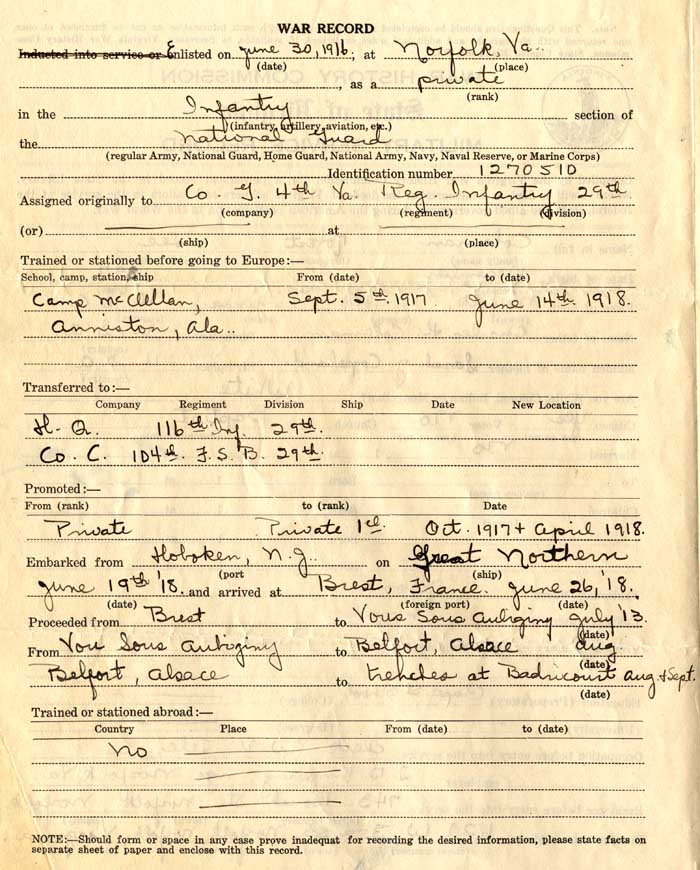 WAR RECORD
Inducted into service or Enlisted on June 30, 1916; at Norfolk, Va..
(date) (place)
, as a private
(rank)
in the Infantry section of
(infantry, artillery, aviation, etc.)
the National Guard
(regular Army, National Guard, Home Guard, National Army, Navy, Naval Reserve, or Marine Corps)
Identification number 1270510
Assigned originally to Co. G. 4th Va. Reg. Infantry 29th
(company) (regiment) (division)
(or) at
(ship) (place)
Trained or stationed before going to Europe:—
School, camp, station, ship From (date) to (date)
Camp McClellan, Sept. 5th. 1917. June 14th 1918.
Anniston, Ala..
Transferred to:—
Company Regiment Division Ship Date New Location
H. Q. 116th Inf. 29th.
Co. C. 104th. F. S. B. 29th.
Promoted:—
From (rank) to (rank) Date
Private Private 1cl. Oct. 1917 + April 1918.
Embarked from Hoboken, N. J.. on Great Northern
(port (ship)
June 19th '18. and arrived at Brest, France. June 26, '18.
(date) (foreign port) (date)
Proceeded from Brest to Vous Sous Aubigny July '13.
(date)
From Vou Sous Aubigny to Belfort, Alsace Aug.
(date)
Belfort, Alsace to trenches at Badricourt Aug + Sept.
(date)
Trained or stationed abroad:—
Country Place From (date) to (date)
No
NOTE:—Should form or space in any case prove inadequat for recording the desired information, please state facts on
separate sheet of paper and enclose with this record.